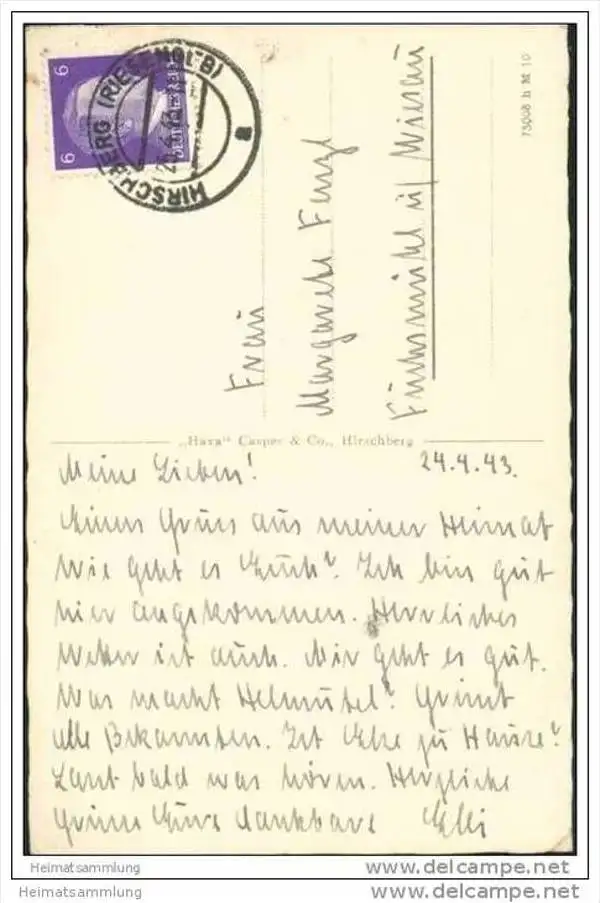 6 6
DEUTSCHES REICH
HIRSCHBERG (RIESENGEB)
a
73008 h M 10
Frau
Margarete Fenzl
Fuchsmühl ü/ Wiesau
„Hava“ Casper & Co., Hirschberg
Meine Lieben! 24.4.43.
Einen Gruss aus meiner Heimat
Wie geht es Euch? Ich bin gut
hier angekommen. Herrliches
Wetter ist auch. Mir geht es gut.
Was macht Helmutel? Grüsst
alle Bekannten. Ist Else zu Hause?
Lasst bald was hören. Herzliche
Grüsse Eure dankbare Elli
Heimatsammlung www.delcampe.net
Heimatsammlung www.delcampe.net